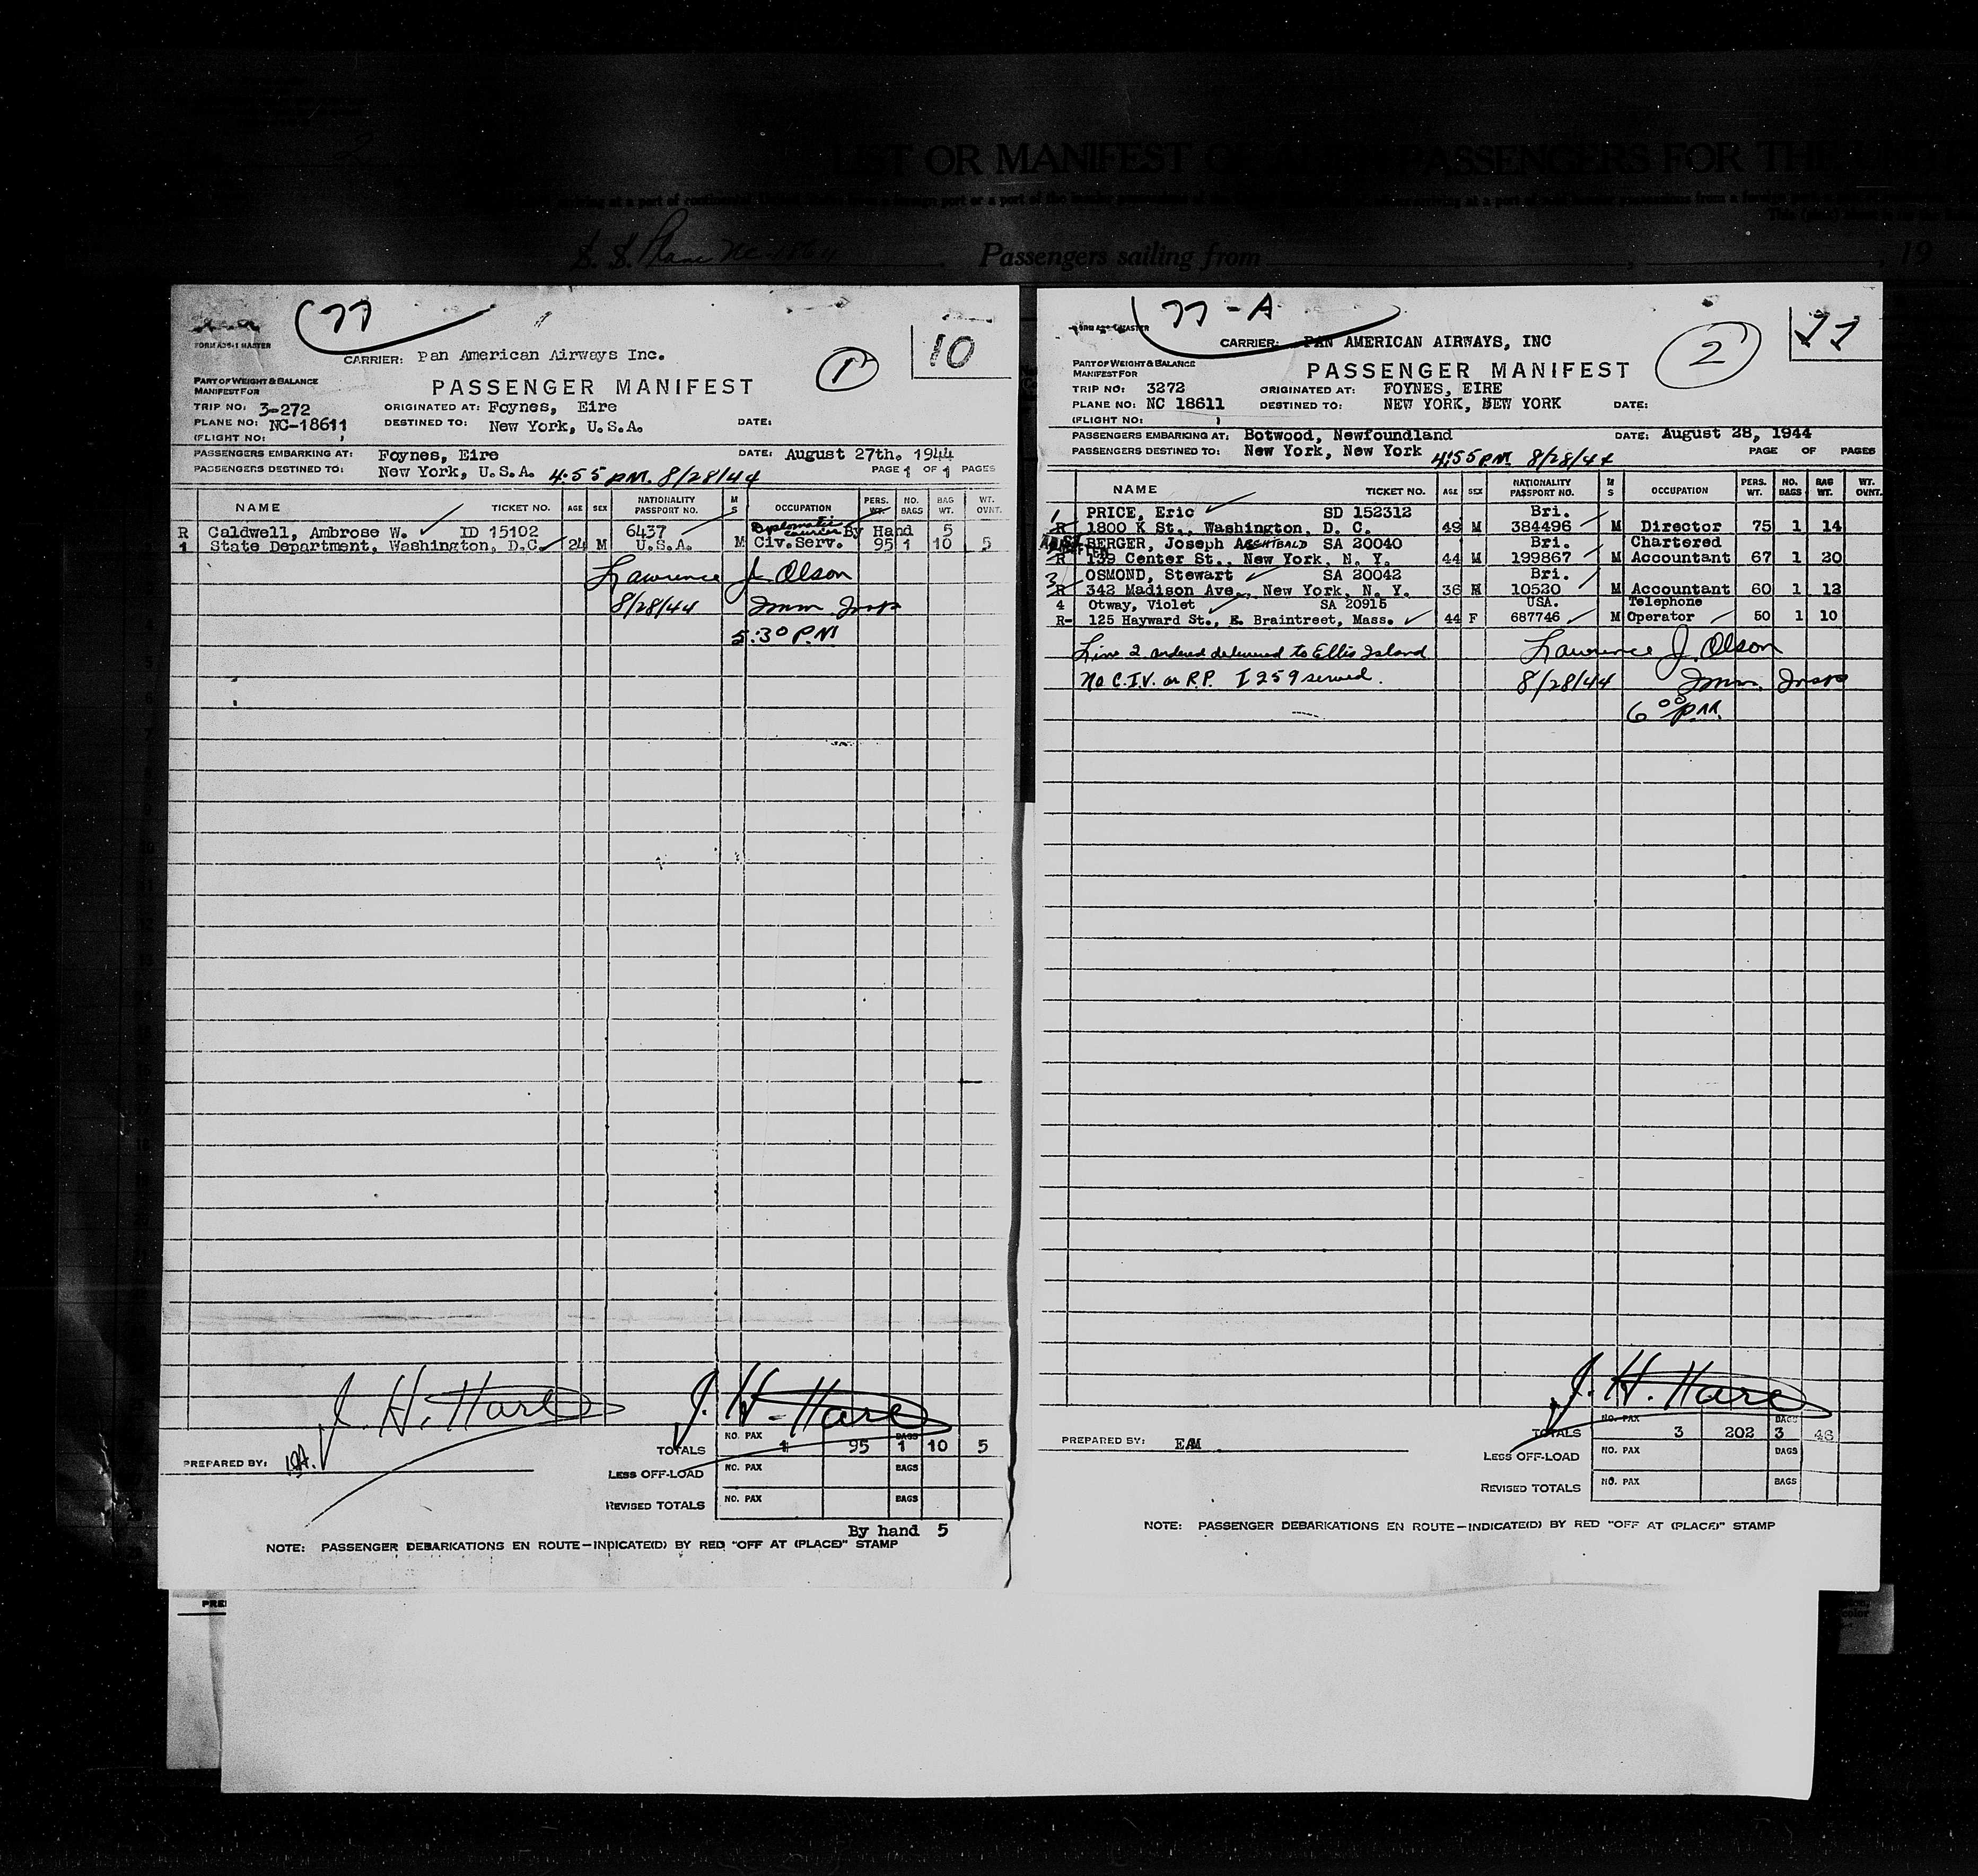 2
LIST OR MANIFEST OF PASSENGERS FOR THE
S. S. Plane NC 18611 Passengers sailing from , 19
77
10
FORM A35-1 MASTER
CARRIER: Pan American Airways Inc.
1
PART OF WEIGHT & BALANCE
MANIFEST FOR
PASSENGER MANIFEST
TRIP NO: 3-272 ORIGINATED AT: Foynes, Eire
PLANE NO: NC-18611 DESTINED TO: New York, U.S.A. DATE:
(FLIGHT NO: )
PASSENGERS EMBARKING AT: Foynes, Eire DATE: August 27th, 1944
PASSENGERS DESTINED TO: New York, U.S.A. 4:55 PM. 8/28/44 PAGE 1 OF 1 PAGES
NAME TICKET NO. AGE SEX NATIONALITY PASSPORT NO. M S OCCUPATION PERS. WT. NO. BAGS BAG WT. WT. OVNT.
R Caldwell, Ambrose W. ID 15102 6437 Diplomatic courier By Hand 5
1 State Department, Washington, D.C. 24 M U.S.A. M Civ.Serv. 95 1 10 5
Lawrence J. Olson
8/28/44 Imm Insp
5:30 PM
J. H. Hare J. H. Hare
TOTALS NO. PAX 1 95 BAGS 1 10 5
PREPARED BY:
LESS OFF-LOAD NO. PAX BAGS
REVISED TOTALS NO. PAX BAGS
By hand 5
NOTE: PASSENGER DEBARKATIONS EN ROUTE-INDICATE(D) BY RED "OFF AT (PLACE)" STAMP
PRE
77-A
11
CARRIER: PAN AMERICAN AIRWAYS, INC
2
PART OF WEIGHT & BALANCE
MANIFEST FOR
PASSENGER MANIFEST
TRIP NO: 3272 ORIGINATED AT: FOYNES, EIRE
PLANE NO: NC 18611 DESTINED TO: NEW YORK, NEW YORK DATE:
(FLIGHT NO: )
PASSENGERS EMBARKING AT: Botwood, Newfoundland DATE: August 28, 1944
PASSENGERS DESTINED TO: New York, New York 4:55 P.M. 8/28/44 PAGE OF PAGES
NAME TICKET NO. AGE SEX NATIONALITY PASSPORT NO. M S OCCUPATION PERS. WT. NO. BAGS BAG WT. WT. OVNT.
1 PRICE, Eric SD 152312 Bri.
R 1800 K St., Washington, D. C. 49 M 384496 M Director 75 1 14
BERGER, Joseph ARCHIBALD SA 20040 Bri. Chartered
R 139 Center St., New York, N. Y. 44 M 199867 M Accountant 67 1 20
3 OSMOND, Stewart SA 20042 Bri.
R 342 Madison Ave., New York, N. Y. 36 M 10520 M Accountant 60 1 12
4 Otway, Violet SA 20915 USA. Telephone
R- 125 Hayward St., E. Braintreet, Mass. 44 F 687746 M Operator 50 1 10
Line 2 ordered delivered to Ellis Island Lawrence J. Olson
No C.I.V. or R.P. I 259 served. 8/28/44 Imm. Insp
6 00 PM.
J. H. Hare
TOTALS NO. PAX 3 202 BAGS 3 46
PREPARED BY: EAM
LESS OFF-LOAD NO. PAX BAGS
REVISED TOTALS NO. PAX BAGS
NOTE: PASSENGER DEBARKATIONS EN ROUTE-INDICATE(D) BY RED "OFF AT (PLACE)" STAMP
color